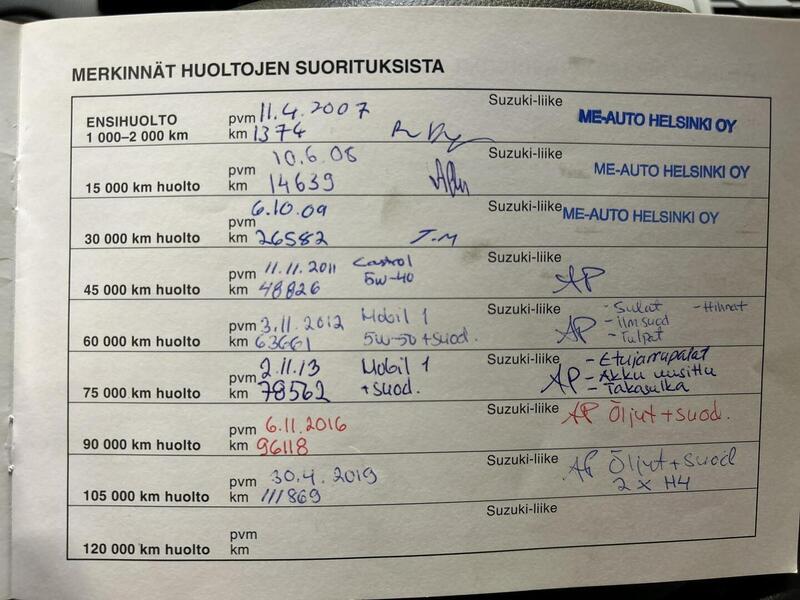 MERKINNÄT HUOLTOJEN SUORITUKSISTA
ENSIHUOLTO pvm 11.4.2007 Suzuki-liike ME-AUTO HELSINKI OY
1 000–2 000 km km 1374
pvm 10.6.08 Suzuki-liike ME-AUTO HELSINKI OY
15 000 km huolto km 14639
pvm 6.10.09 Suzuki-liike ME-AUTO HELSINKI OY
30 000 km huolto km 26582 J.M
pvm 11.11.2011 Castrol Suzuki-liike AP
45 000 km huolto km 48826 5W-40
pvm 3.11.2012 Mobil 1 Suzuki-liike AP - Sulat - Hihnat
60 000 km huolto km 63661 5W-50 + suod. - ilmsuod
- Tulpat
pvm 2.11.13 Mobil 1 Suzuki-liike AP - Etujarrupalat
75 000 km huolto km 78562 + suod. - Akku uusittu
- Takasulka
pvm 6.11.2016 Suzuki-liike AP Öljut + suod.
90 000 km huolto km 96118
pvm 30.4.2019 Suzuki-liike AP Öljut + suod
105 000 km huolto km 111869 2 x H4
pvm Suzuki-liike
120 000 km huolto km